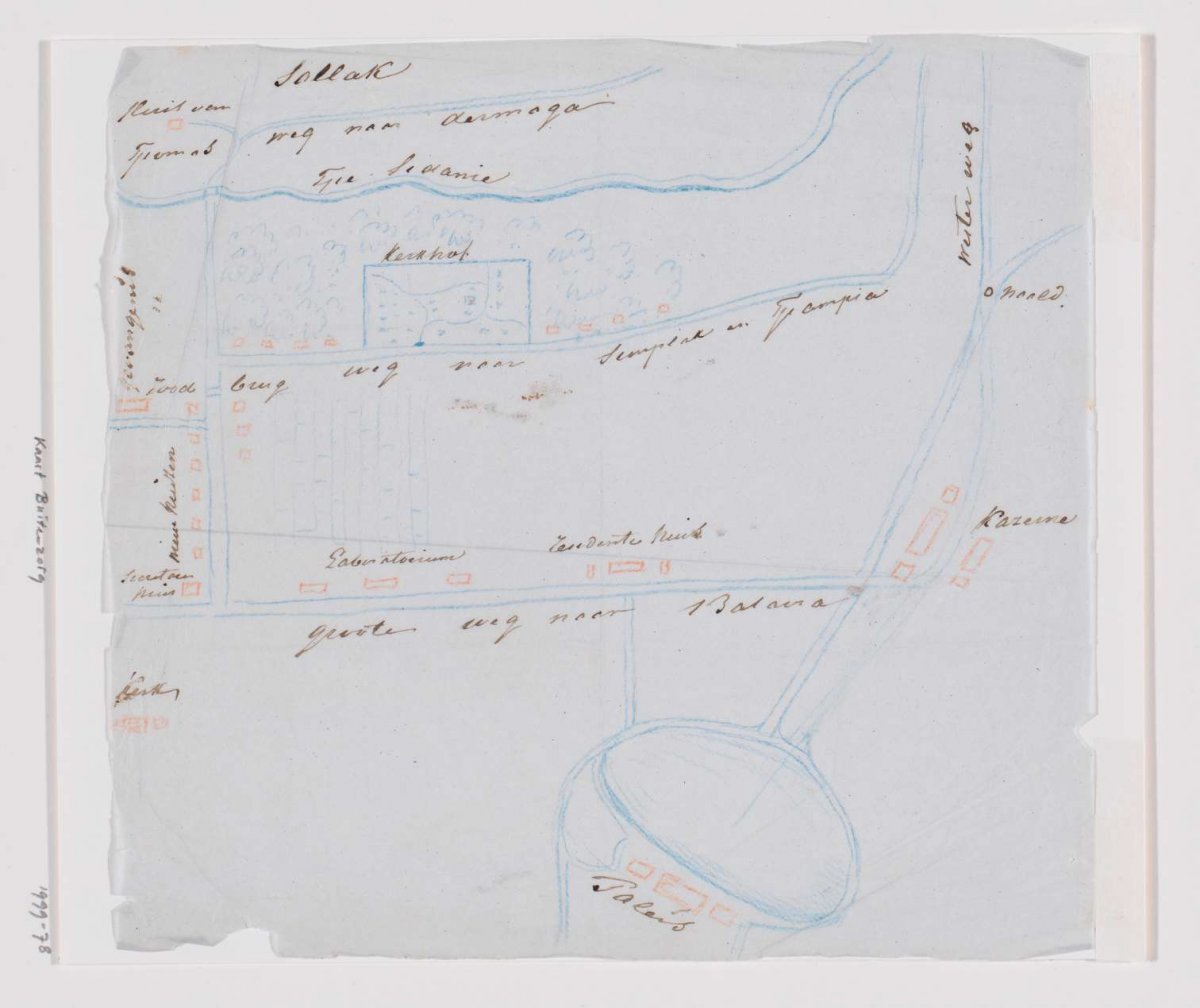 Sollak
Huis van
Tjomas
weg naar dermaga
Tjie Sidanie
wester weg
Kerkhof
naald.
weg naar Semplak en Tjampia
Gevangenis
rood brug
Kazerne
Laboratorium
residents huis
Secretaris
huis
groote weg naar Batavia
Kerk
Paleis
Kaart Buitenzorg
1999-78